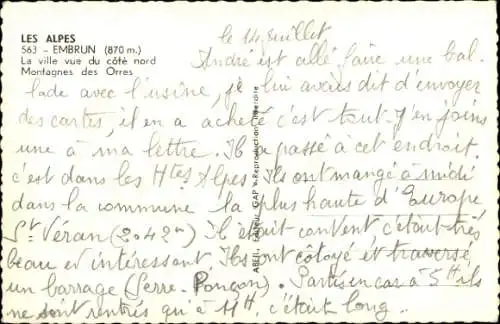 LES ALPES
563 - EMBRUN (870 m.)
La ville vue du côté nord
Montagnes des Orres
le 14 juillet
André est allé faire une bal
lade avec l'usine, je lui avais dit d'envoyer
des cartes, il en a acheté c'est tout. J'en joins
une à ma lettre. Il a passé à cet endroit
c'est dans les Htes Alpes. Ils ont mangé à midi
dans la commune la plus haute d'Europe
St Véran (2.042m) Il était content c'était très
beau et intéressant. Ils ont côtoyé et traversé
un barrage (Serre-Ponçon). Partis en car à 5H ils
ne sont rentrés qu'à 11H. c'était long.
GAP - Reproduction interdite